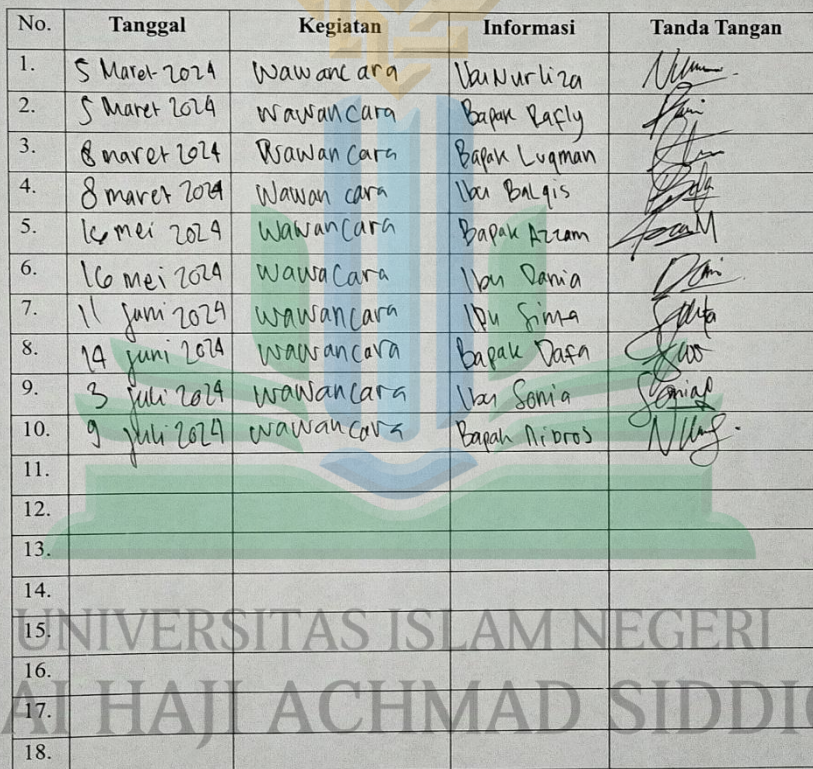 No. Tanggal Kegiatan Informasi Tanda Tangan
1. 5 Maret 2024 Wawancara Ibu Nurliza
2. 5 Maret 2024 Wawancara Bapak Rafly
3. 8 maret 2024 Wawancara Bapak Luqman
4. 8 maret 2024 Wawancara Ibu Balqis
5. 16 mei 2024 Wawancara Bapak Azzam
6. 16 mei 2024 Wawacara Ibu Dania
7. 11 juni 2024 Wawancara Ibu Sinta
8. 14 juni 2024 Wawancara Bapak Dafa
9. 3 juli 2024 Wawancara Ibu Sonia
10. 9 juli 2024 Wawancara Bapak Nibros
11.
12.
13.
14.
UNIVERSITAS ISLAM NEGERI
15.
16.
AI HAJI ACHMAD SIDDI
17.
18.